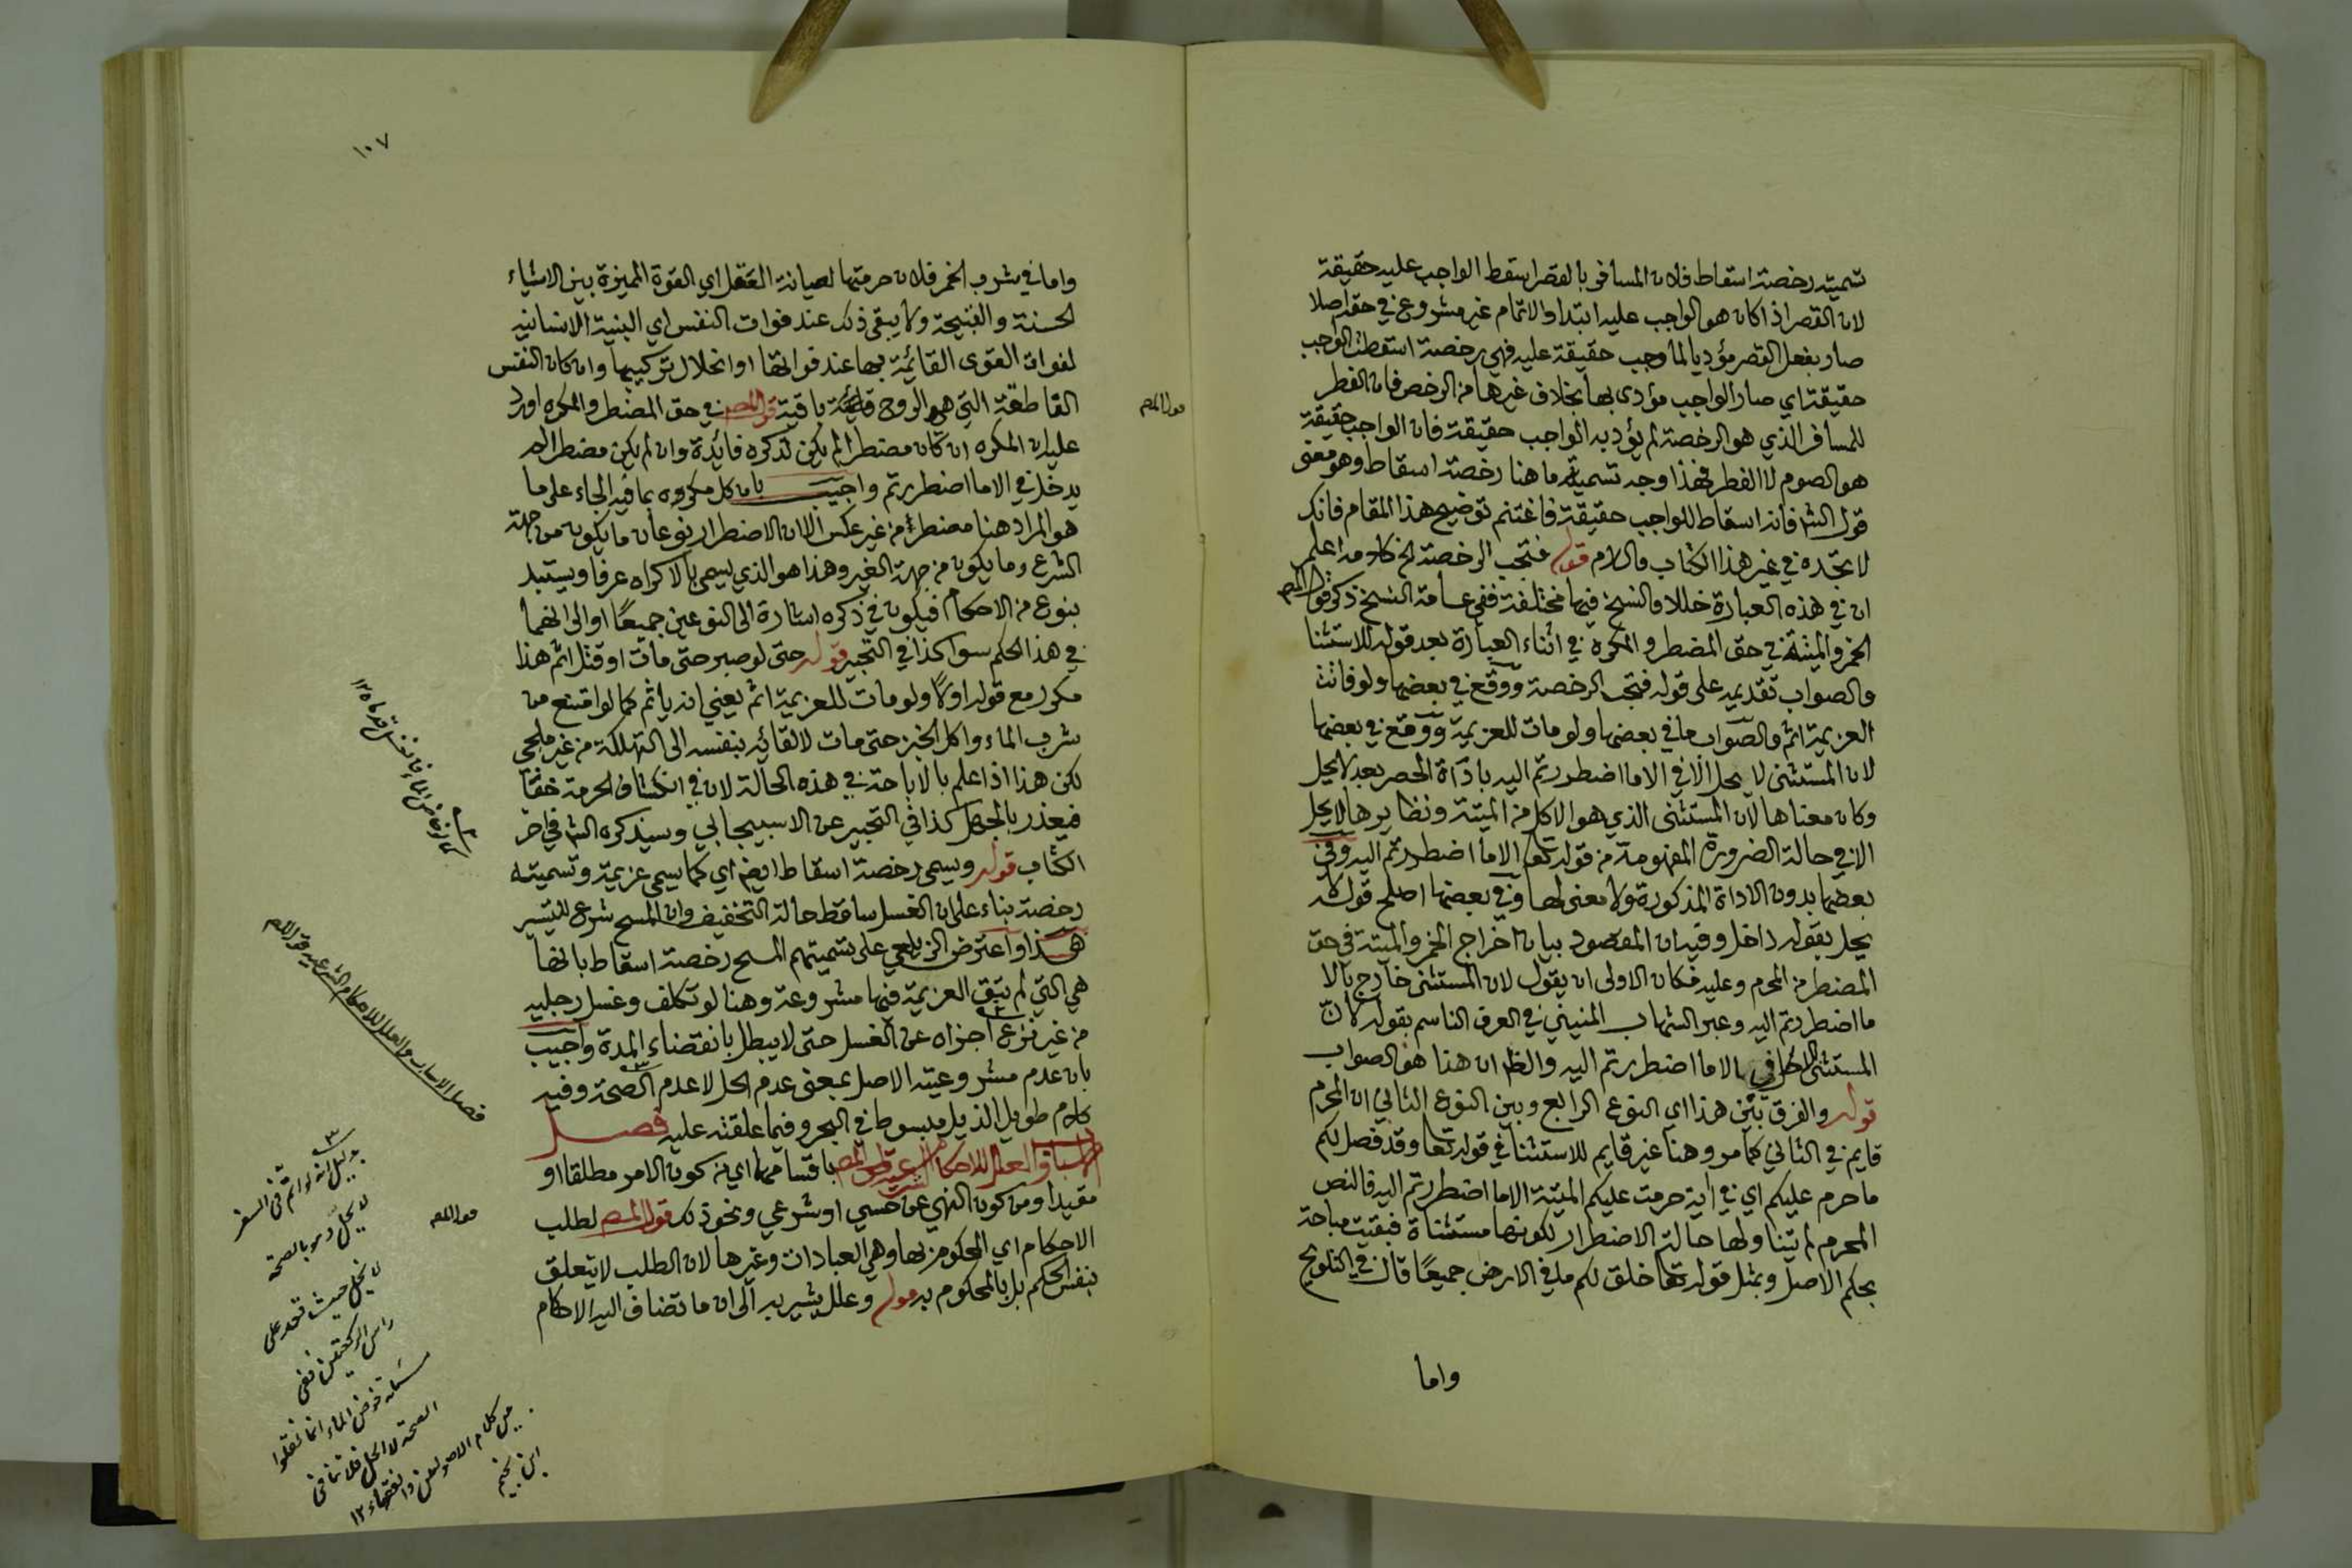 تسميته رخصة اسقاط فلان المسافر بالقصر اسقط الواجب عليه حقيقة
لان القصر اذا كان هو الواجب عليه ابتداء والاتمام غير مشروع في حقه اصلا
صار بفعل القصر مؤديا لما وجب حقيقة عليه فهي رخصة اسقطت الواجب
حقيقة اي صار الواجب مؤدى بها بخلاف غيرها من الرخص فان الفطر
للمسافر الذي هو الرخصة لم يؤد به الواجب حقيقة فان الواجب حقيقة
هو الصوم لا الفطر فهذا وجه تسمية ما هنا رخصة اسقاط وهو معنى
قول الش فانه اسقاط للواجب حقيقة فاغتنم توضيح هذا المقام فانك
لا تجده في غير هذا الكتاب والسلام قوله فتجب الرخصة الخ اعلم
ان في هذه العبارة خللا والنسخ فيها مختلفة ففي عامة النسخ ذكر قول المص
الخمر والميتة في حق المضطر والمكره في اثناء العبارة بعد قوله للاستثنا
والصواب تقديمه على قوله فتجب الرخصة ووقع في بعضها ولو فاتت
العزيمة اثم والصواب ما في بعضها ولو مات للعزيمة ووقع في بعضها
لان المستثنى لا يحل الا في الا ما اضطررتم اليه باداة الحصر بعد لا يحل
وكان معناها لان المستثنى الذي هو الاكل من الميتة ونظايرها لا يحل
الا في حالة الضرورة المفهومة من قوله تعالى الا ما اضطررتم اليه وفي
بعضها بدون الاداة المذكورة ولا معنى لها وفي بعضها اصلح قوله لا
يحل بقوله داخل وفيه ان المقصود بيان اخراج الخمر والميتة في حق
المضطر من المحرم وعليه فكان الاولى ان يقول لان المستثنى خارج بالا
ما اضطررتم اليه وعبر الشهاب المنيني في العرف الناسم بقوله لان
المستثنى الاكل في الا ما اضطررتم اليه والظ ان هذا هو الصواب
قوله والفرق بين هذا اي النوع الرابع وبين النوع الثاني ان المحرم
قايم في الثاني كما مر وهنا غير قايم للاستثنا في قوله تعا وقد فصل لكم
ما حرم عليكم اي في اية حرمت عليكم الميتة الا ما اضطررتم اليه فالنص
المحرم لم يتناولها حالة الاضطرار لكونها مستثناة فبقيت مباحة
بحكم الاصل وبمثل قوله تعا خلق لكم ما في الارض جميعًا قال في التلويح
واما
١٠٧
واما في شرب الخمر فلان حرمتها لصيانة العقل اي القوة المميزة بين الاشياء
الحسنة والقبيحة ولا يبقى ذلك عند فوات النفس اي البنية الانسانية
لفوات القوى القائمة بها عند فواتها او انحلال تركيبها وان كان النفس
القاطعة التي هي الروح قائمة باقية قول المص في حق المضطر والمكره اورد
عليه ان المكره ان كان مضطرا لم يكن لذكره فائدة وان لم يكن مضطرا لم
يدخل في الا ما اضطررتم واجيب بان كل مكره بما فيه الجاء على ما
هو المراد هنا مضطر من غير عكس الا ان الاضطرار نوعان ما يكون من جهة
الشرع وما يكون من جهة الغير وهذا هو الذي يسمى بالاكراه عرفا ويستبد
بنوع من الاحكام فيكون في ذكره اشارة الى النوعين جميعًا او الى انهما
في هذا الحكم سوا كذا في التحبير قوله حتى لو صبر حتى مات او قتل اثم هذا
مكرر مع قوله اولا ولو مات للعزيمة اثم يعني انه ياثم كما لو امتنع من
شرب الماء واكل الخبز حتى مات لالقائه بنفسه الى التهلكة من غير ملجي
لكن هذا اذا علم بالاباحة في هذه الحالة لان في انكشاف الحرمة خفا
فيعذر بالجهل كذا في التحبير عن الاسبيجابي وسيذكره الش في اخر
الكتاب قوله ويسمى رخصة اسقاط ايضا اي كما يسمى عزيمة وتسميته
رخصة بناء على ان الغسل ساقط حالة التخفيف وان المسح شرع للتيسير
هذا واعترض الزيلعي على تسميتهم المسح رخصة اسقاط بانها
هي التي لم تبق العزيمة فيها مشروعة وهنا لو تكلف وغسل رجليه
من غير نزع اجزاه عن الغسل حتى لا يبطل بانقضاء المدة واجيب
بان عدم مشروعيته الاصل بمعنى عدم الحل لا عدم الصحة وفيه
كلام طويل الذيل مبسوط في البحر وفيما علقته عليه فصل
الاسباب والعلل للاحكام الشرعية قول المص باقسامها اي من كون الامر مطلقا او
مقيدا ومن كون النهي عن حسي او شرعي ونحو ذلك قول المص لطلب
الاحكام اي المحكوم بها وهي العبادات وغيرها لان الطلب لا يتعلق
بنفس الحكم بل بالمحكوم به قوله وعلل يشير به الى ان ما تضاف اليه الاحكام
قول المص
فصل الاسباب والعلل للاحكام الشرعية قول المص
قول المص
بدليل انه لو اتم في السفر
لا يحل مع بالصحة
لا يحل حيث قعد على
راس الركعتين ففي
مسئلة خوض الماء انما نقلوا
الصحة لا الحل فلا تنافي
بين كلام الاصوليين والفقهاء ١٢
ابن نجيم